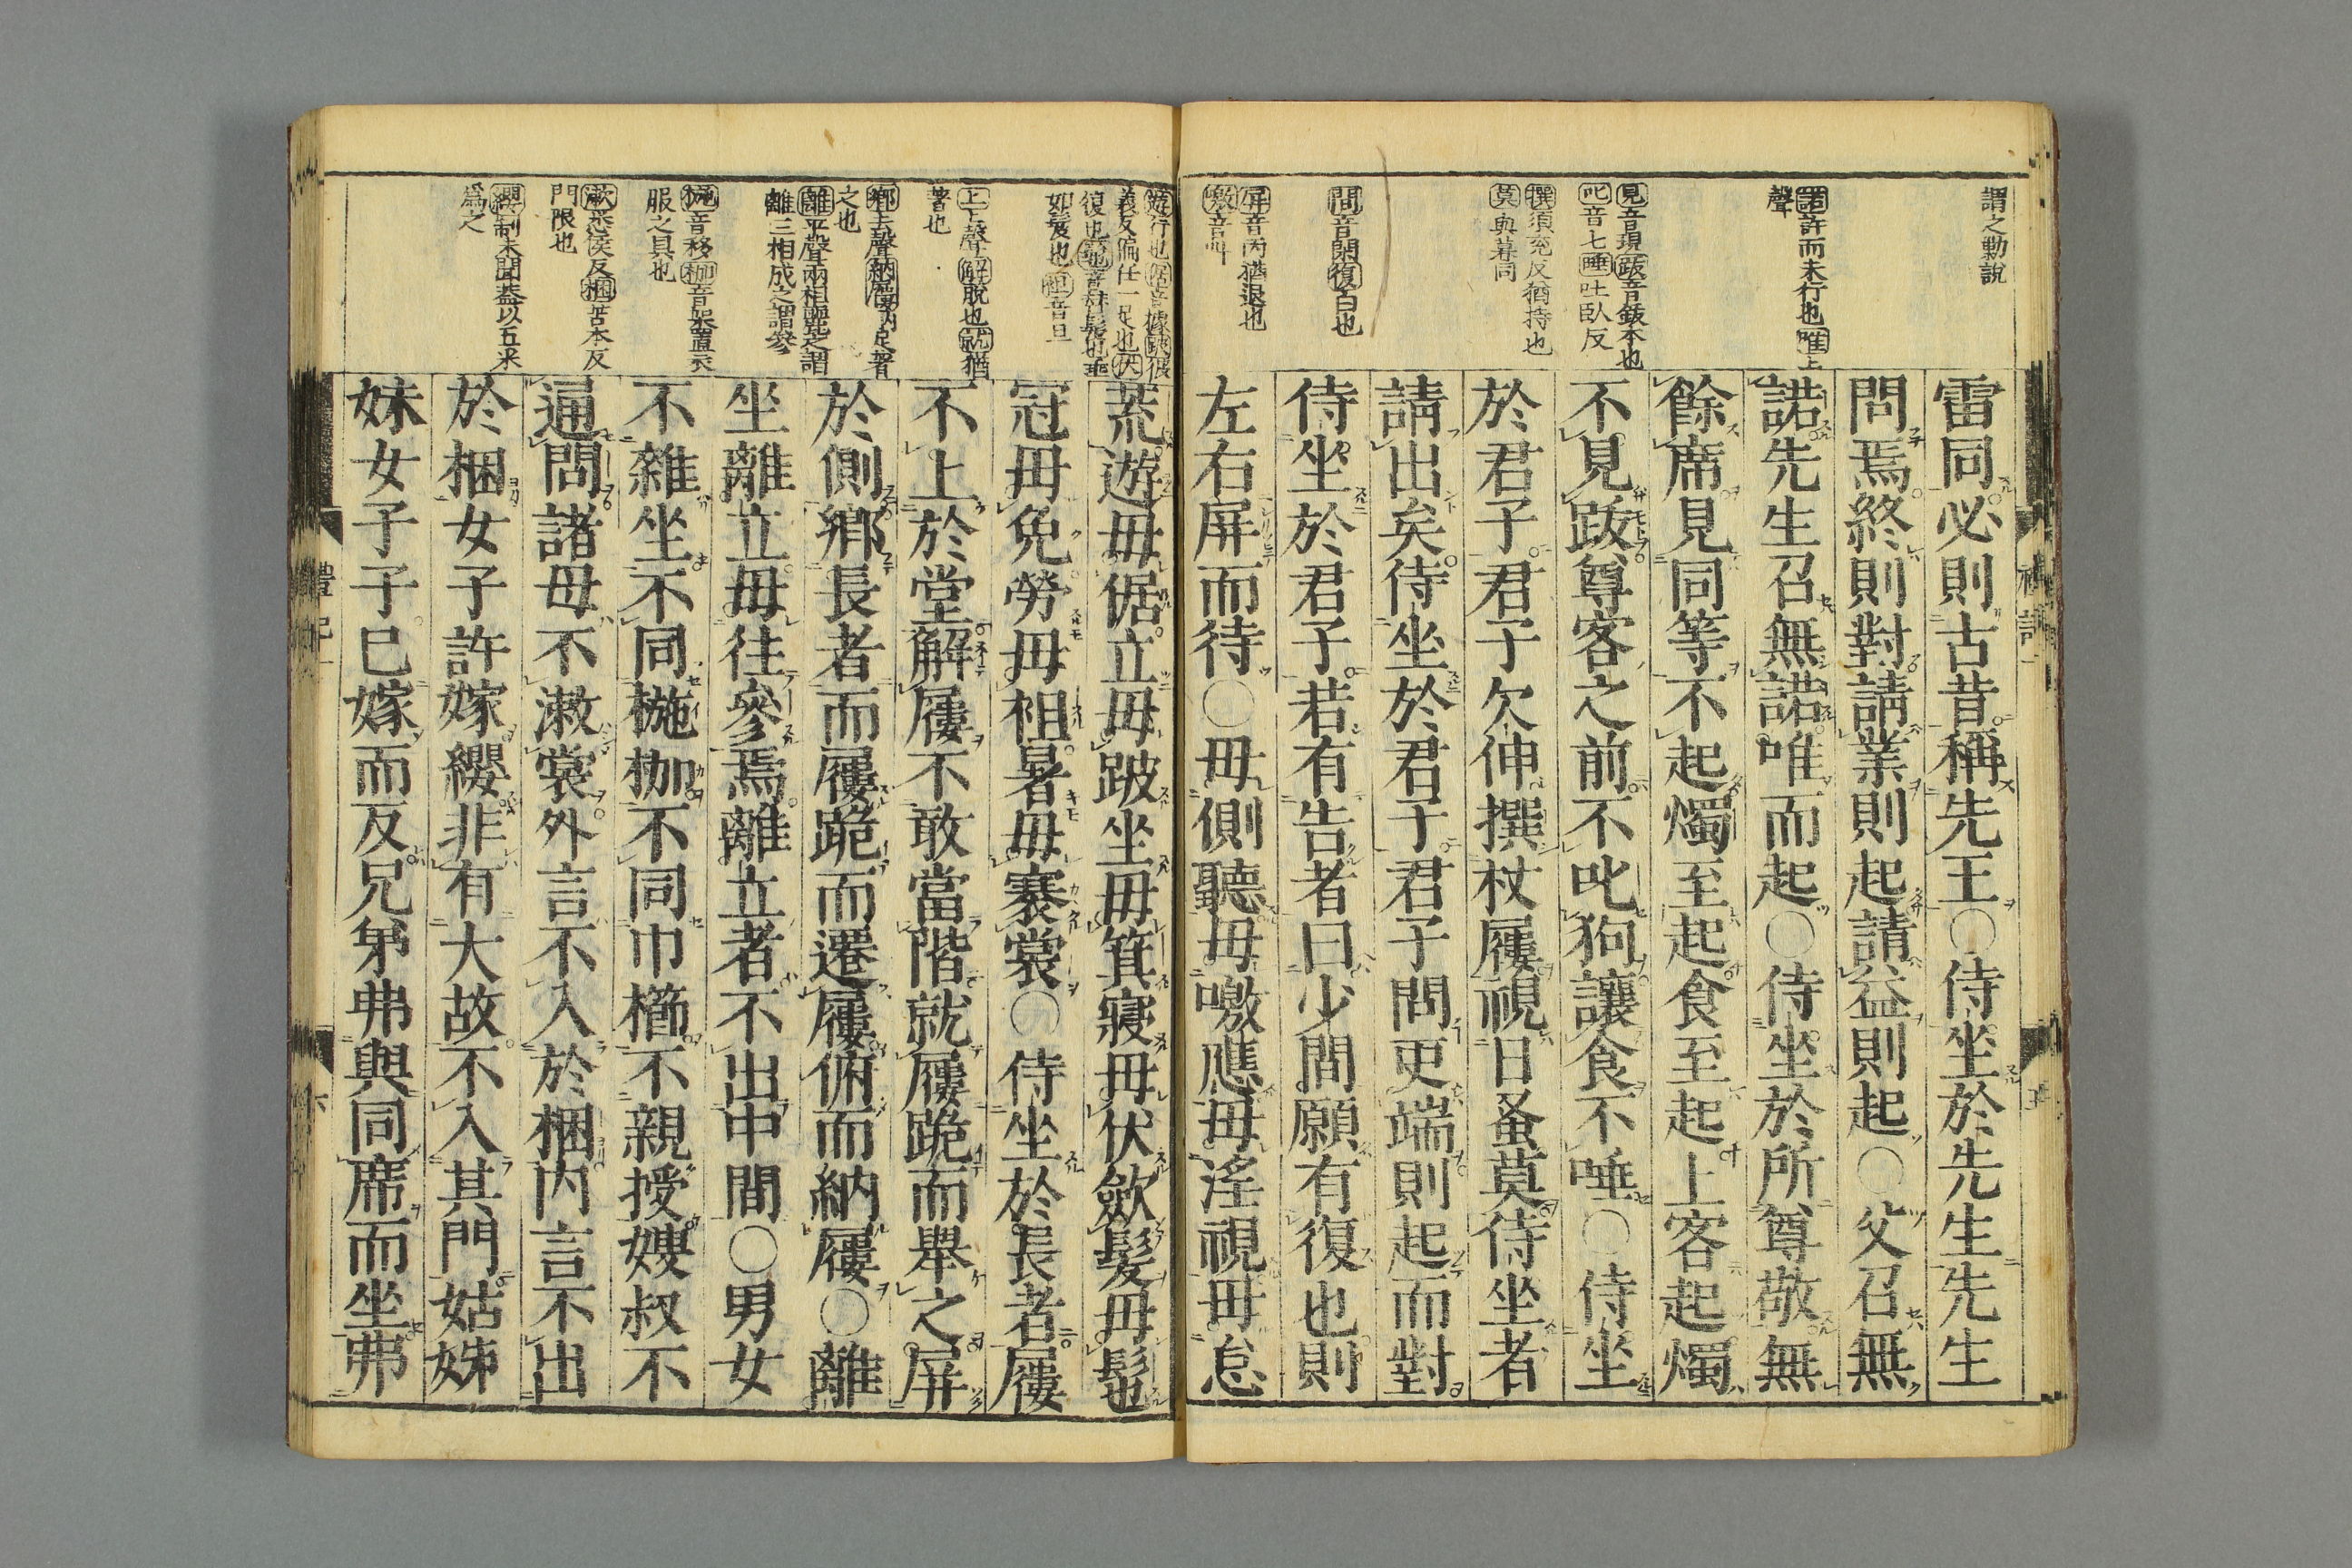 謂之勦說
諾許而未行也唯上
聲
見音現跋音鈸本也
叱音七唾吐臥反
撰須兗反猶持也
莫與暮同
間音閑復白也
屏音丙猶退也
噭音叫
雷同必則古昔稱先王○侍坐於先生先生
問焉終則對請業則起請益則起○父召無
諾先生召無諾唯而起○侍坐於所尊敬無
餘席見同等不起燭至起食至起上客起燭
不見跋尊客之前不叱狗讓食不唾○侍坐
於君子君子欠伸撰杖屨視日蚤莫侍坐者
請出矣侍坐於君子君子問更端則起而對
侍坐於君子若有告者曰少間願有復也則
左右屏而待○毋側聽毋噭應毋淫視毋怠
遊行也倨音據跛彼
義反偏任一足也伏
復也髢音替髲也垂
如髲也袒音旦
上上聲解脫也就猶
著也
鄉去聲納屨納足著
之也
離平聲兩相麗之謂
離三相成之謂參
椸音移枷音架置衣
服之具也
漱悉侯反梱苦本反
門限也
纓制未聞蓋以五采
爲之
荒遊毋倨立毋跛坐毋箕寢毋伏斂髮毋髢
冠毋免勞毋袒暑毋褰裳○侍坐於長者屨
不上於堂解屨不敢當階就屨跪而舉之屏
於側鄉長者而屨跪而遷屨俯而納屨○離
坐離立毋往參焉離立者不出中間○男女
不雜坐不同椸枷不同巾櫛不親授嫂叔不
通問諸母不漱裳外言不入於梱內言不出
於梱女子許嫁纓非有大故不入其門姑姊
妹女子子已嫁而反兄弟弗與同席而坐弗
禮記一
六